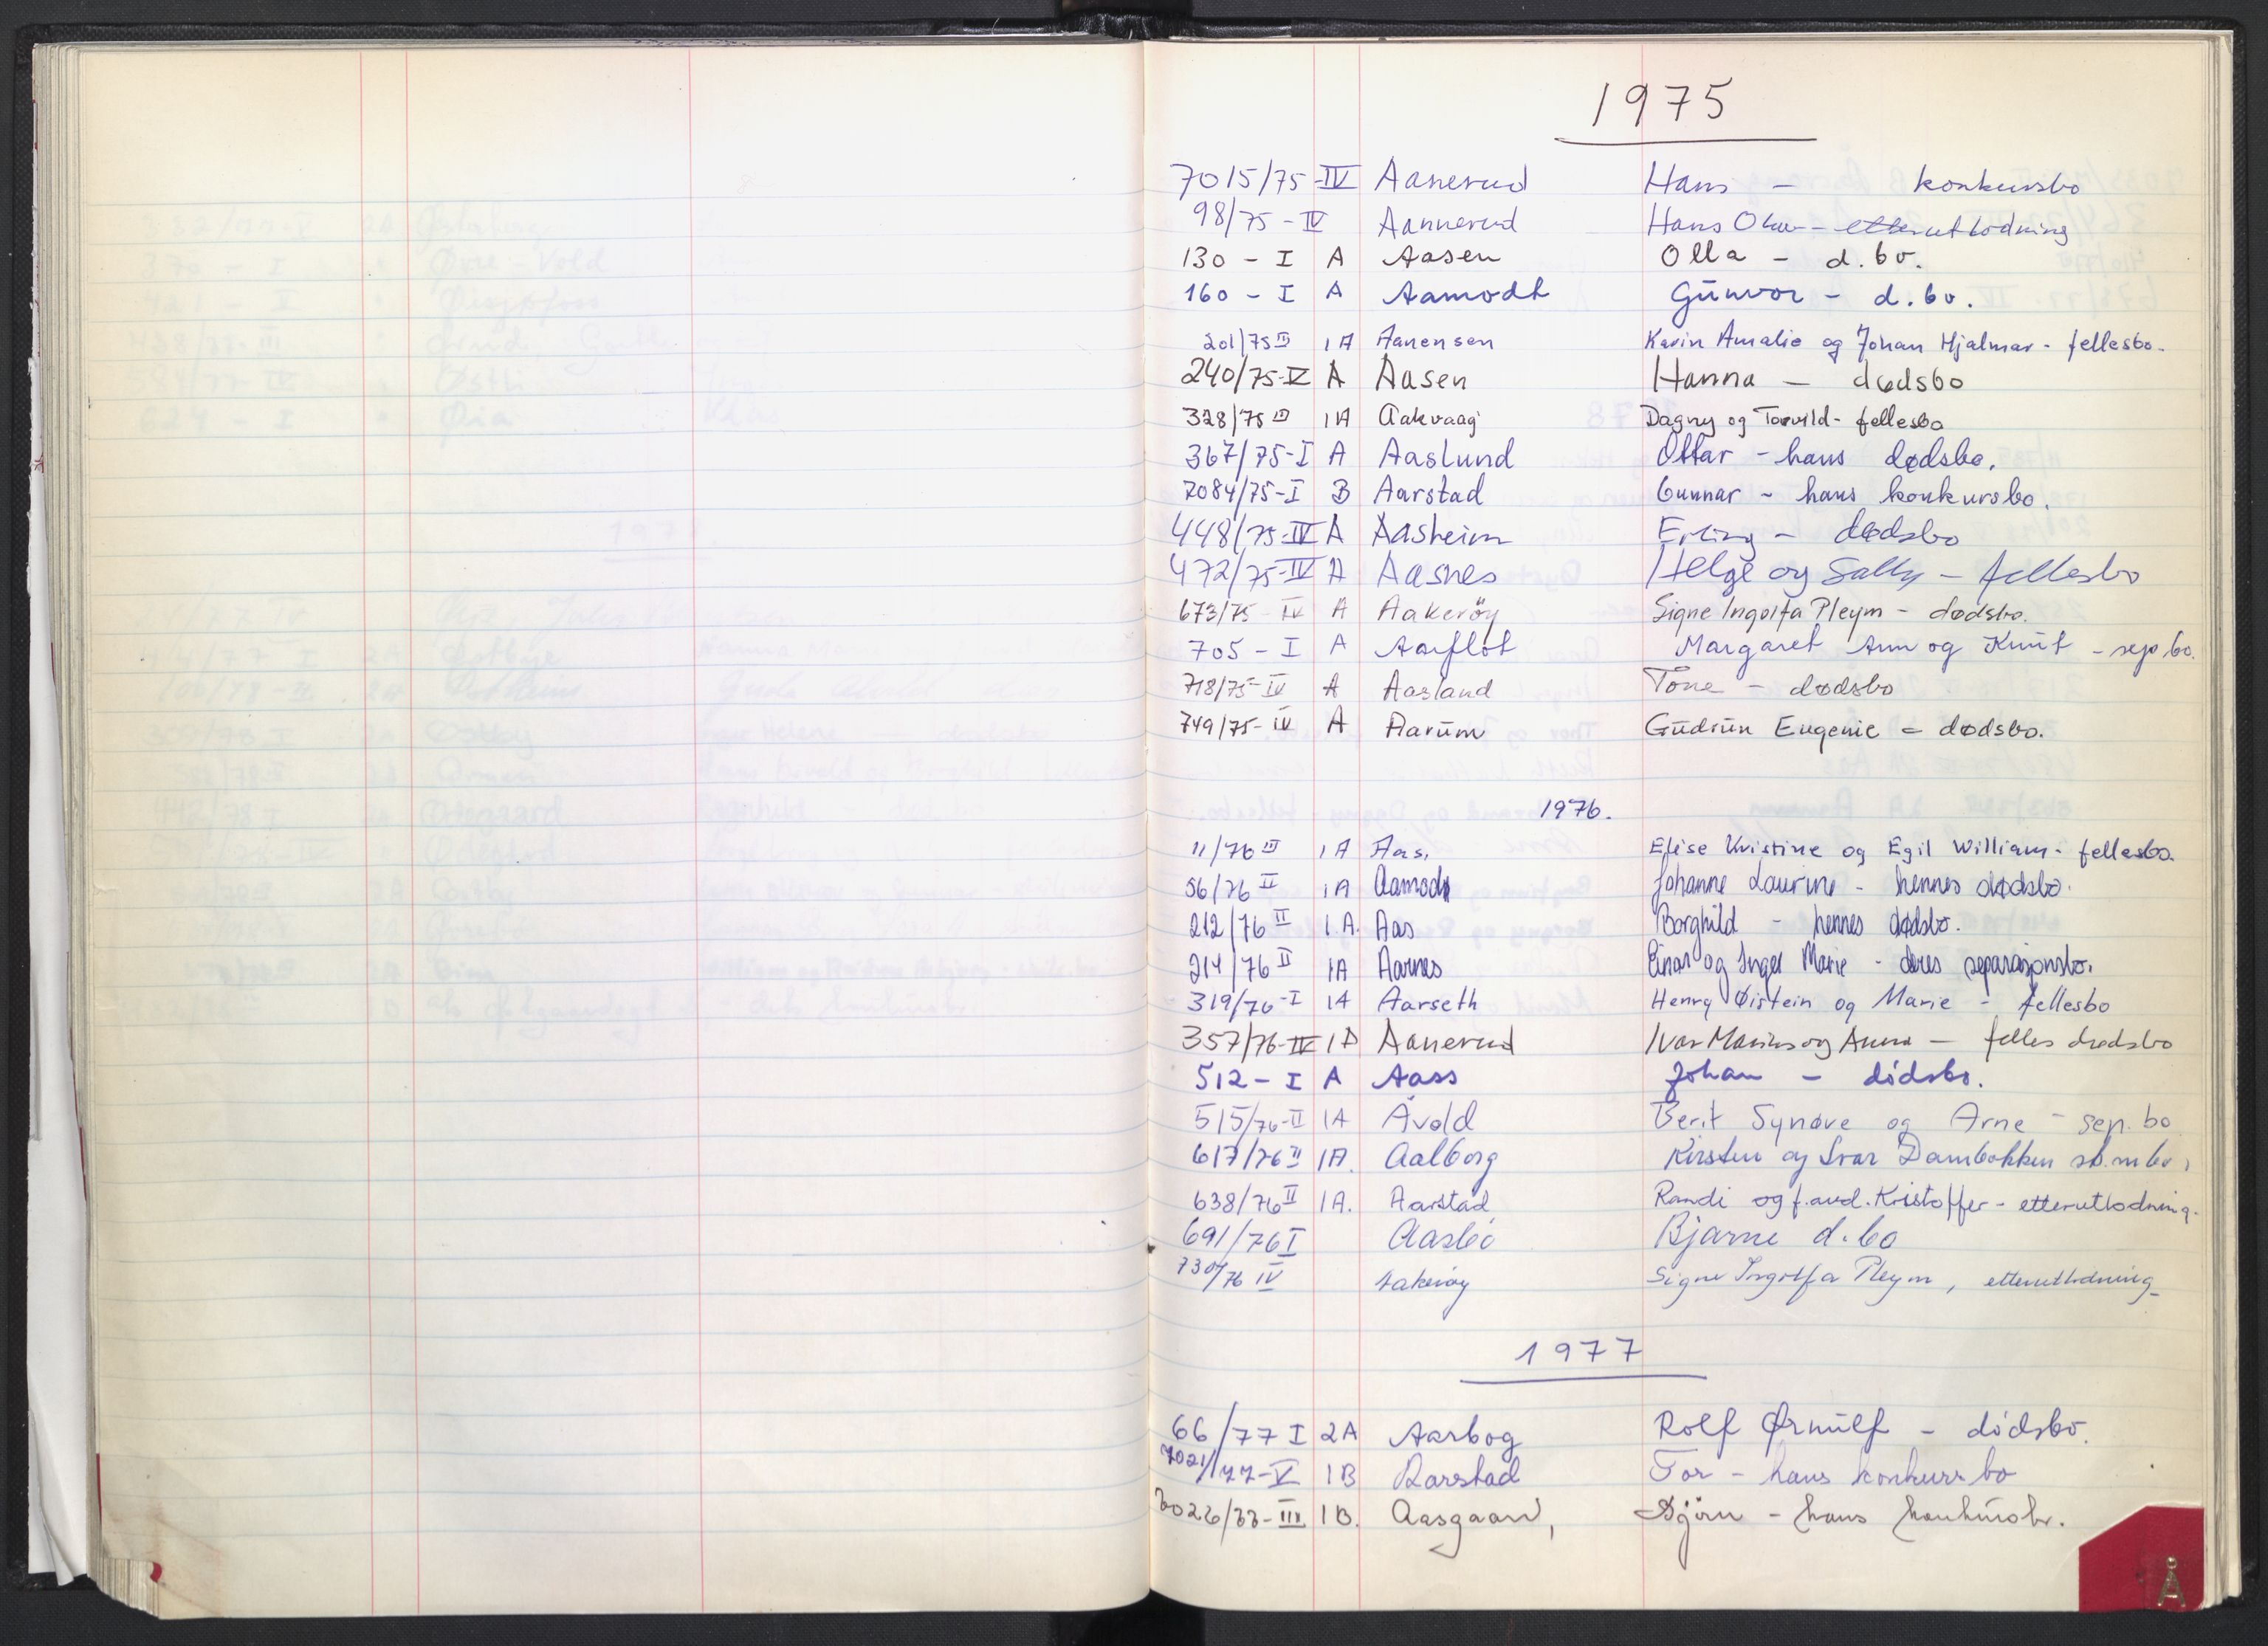 1975
7015/75-IV Aanerud Hans - konkursbo
98/75-IV Aannerud Hans Olav - etterutlodning
130 - I A Aasen Olla - d.bo.
160 - I A Aamodt Gunvor - d.bo.
201/75 III 1A Aanensen Karin Amalie og Johan Hjalmar - fellesbo.
240/75-IV A Aasen Hanna - dødsbo
328/75 III 1A Aakvaag Dagny og Torvild - fellesbo
367/75-I A Aaslund Ottar - hans dødsbo.
7084/75-I B Aarstad Gunnar - hans konkursbo.
448/75-IV A Aasheim Erling - dødsbo
472/75-IV A Aasnes Helge og Sally - fellesbo
673/75-IV A Aakerøy Signe Ingolfa Pleym - dødsbo.
705 - I A Aarflot Margaret Ann og Knut - sep.bo.
718/75-IV A Aasland Tone - dødsbo
749/75-IV A Aarum Gudrun Eugenie - dødsbo.
1976.
11/76 III 1A Aas, Elise Kristine og Egil William - fellesbo.
56/76 II 1A Aamodt Johanne Laurine - hennes dødsbo.
212/76 II 1.A. Aas Borghild - hennes dødsbo.
214/76 II 1A Aarnes Einar og Inger Marie - deres separasjonsbo.
319/76-I 1A Aarseth Henry Øistein og Marie - fellesbo
357/76-IV 1A Aanerud Ivar Marius og Anna - felles dødsbo
512 - I A Aass Johan - dødsbo.
515/76-II 1A Åvold Berit Synøve og Arne - sep. bo
617/76 II 1A. Aalborg Kirsten og Ivar Dambakken
638/76 II 1A. Aarstad Randi og f.avd. Kristoffer - etterutlodning.
691/76 I Aasbø Bjarne d.bo
730/76 IV Aakerøy Signe Ingolfa Pleym, etterutlodning
1977
66/77 I 2A Aarbog Rolf Ørnulf - dødsbo.
7021/77-V 1B Aarstad Tor - hans konkursbo
7026/77-III 1B. Aasgaard, Bjørn - hans konkursbo.
Å